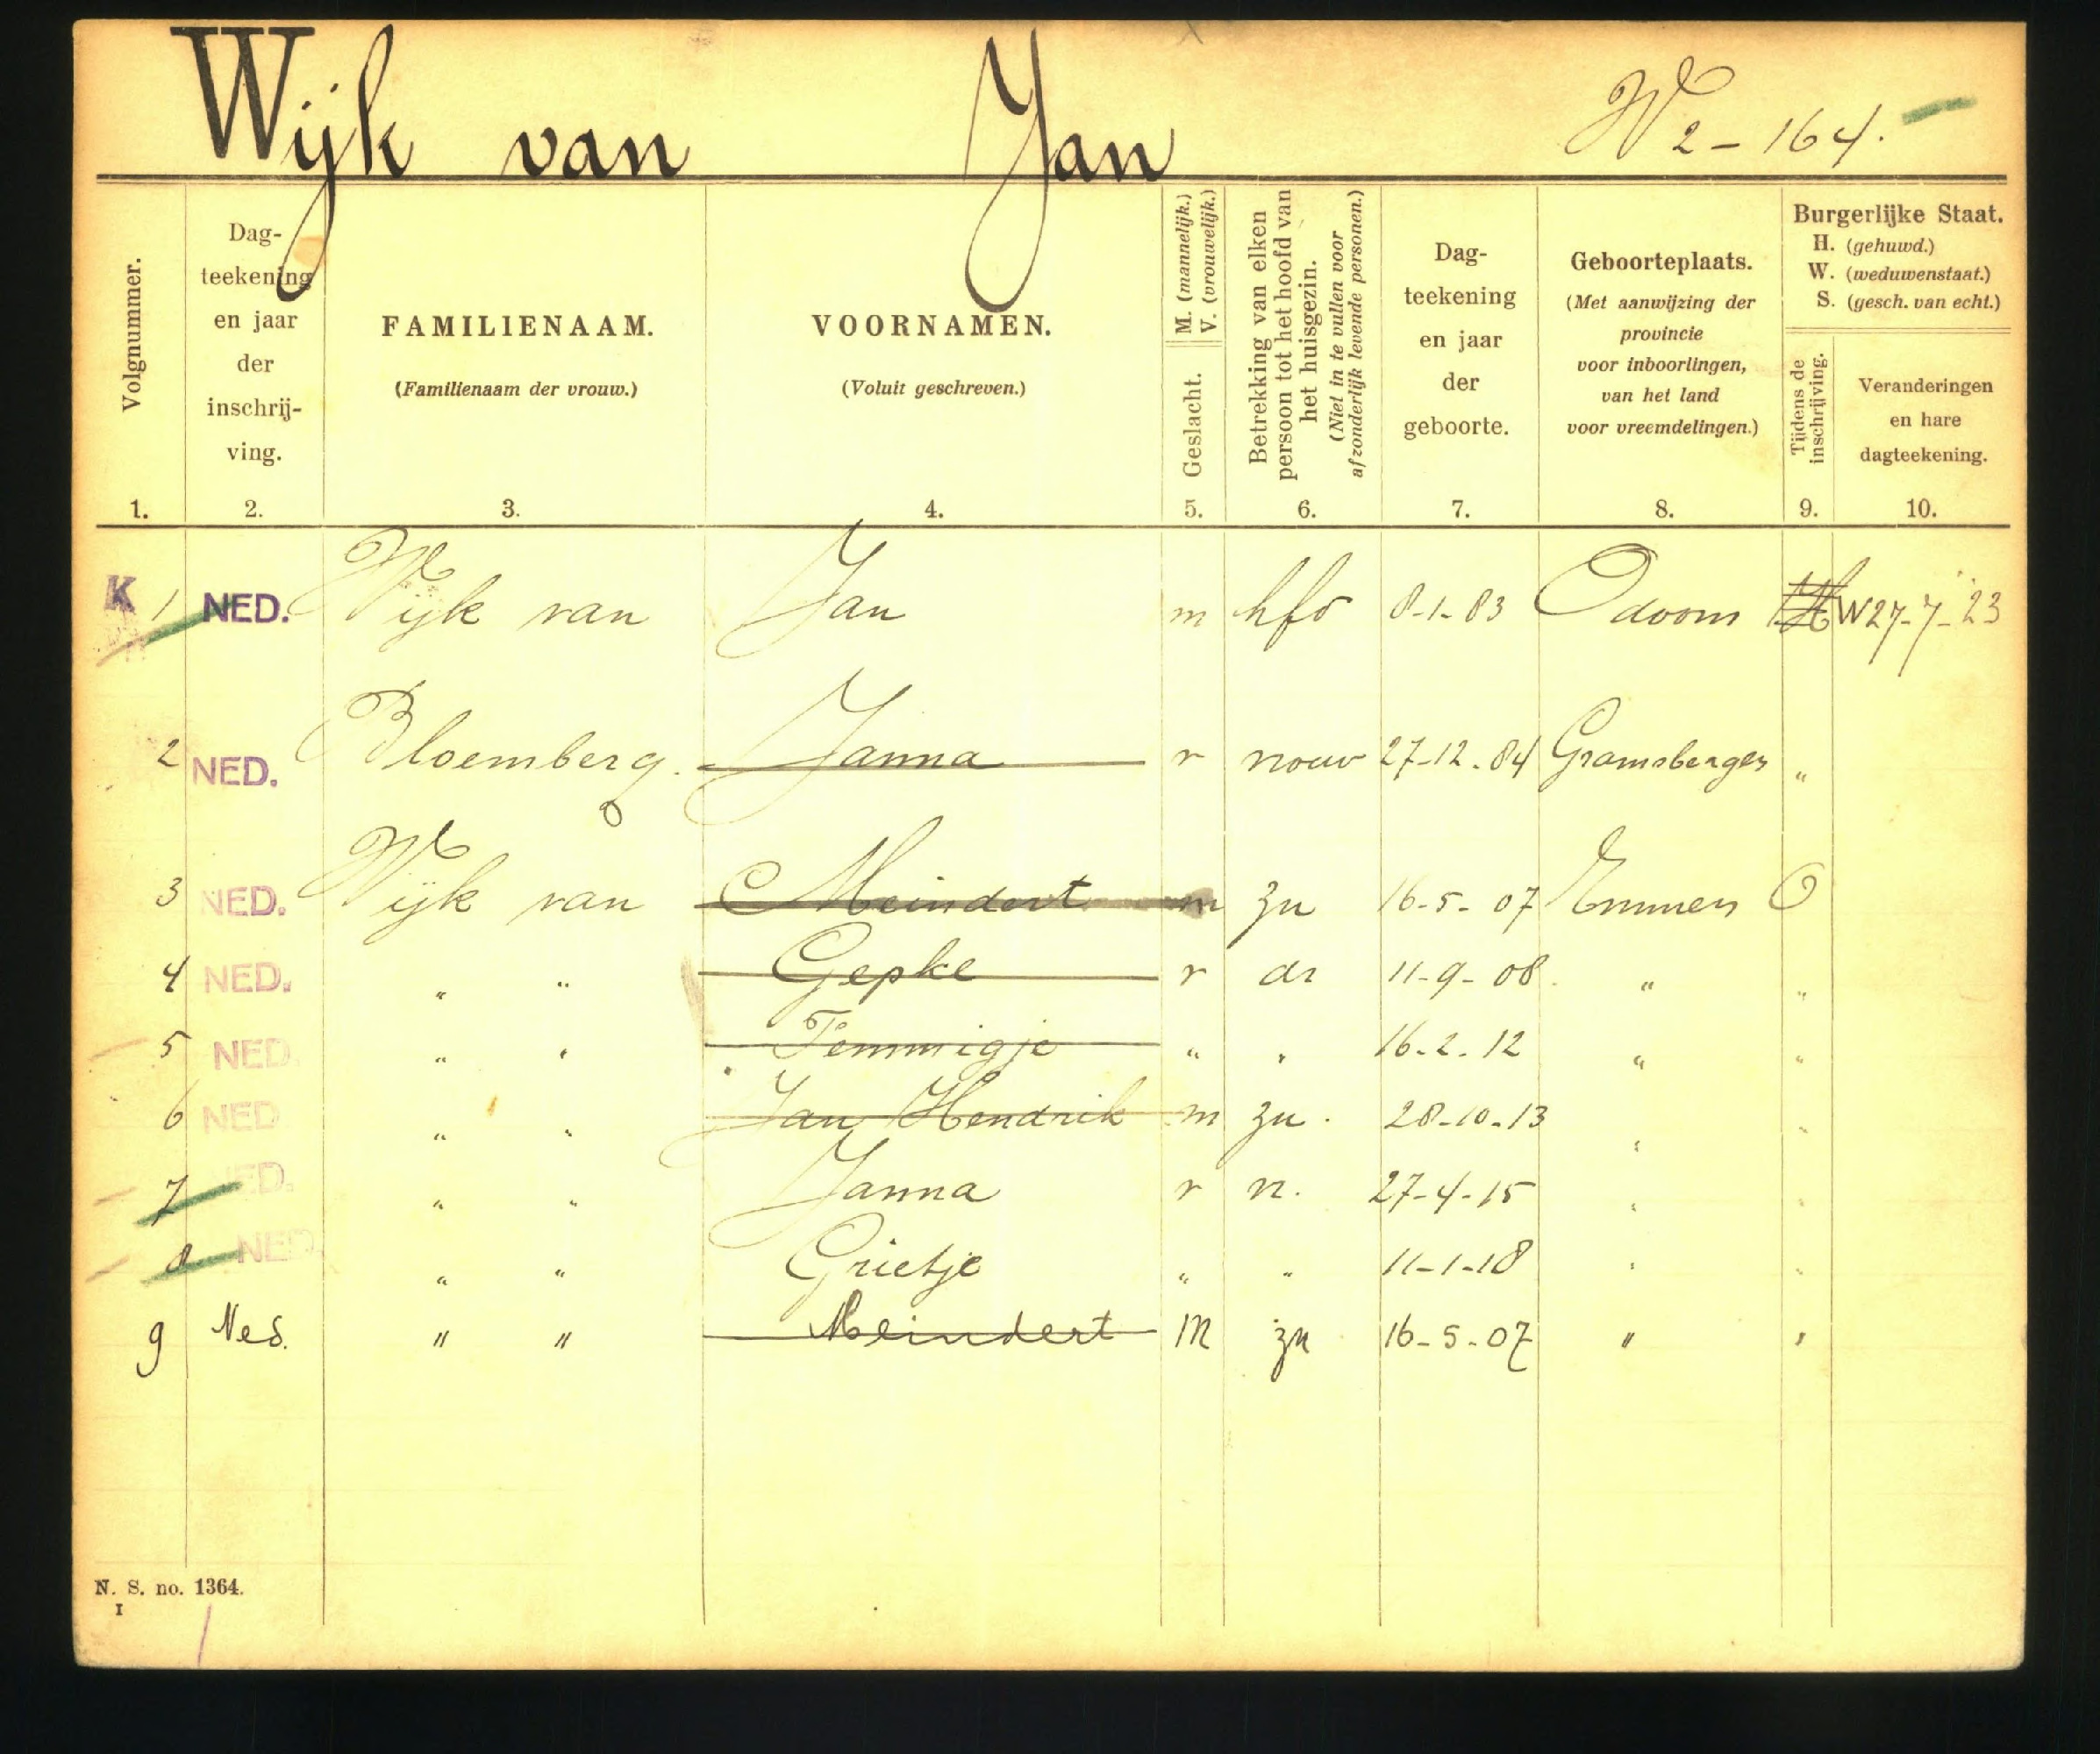 Wijk van Jan W2-164.
Volgnummer. 1.
Dag-
teekening
en jaar
der
inschrij-
ving.
2.
FAMILIENAAM.
(Familienaam der vrouw.)
3.
VOORNAMEN.
(Voluit geschreven.)
4.
M. (mannelijk.)
V. (vrouwelijk.)
Geslacht.
5.
Betrekking van elken
persoon tot het hoofd van
het huisgezin.
(Niet in te vullen voor
afzonderlijk levende personen.)
6.
Dag-
teekening
en jaar
der
geboorte.
7.
Geboorteplaats.
(Met aanwijzing der
provincie
voor inboorlingen,
van het land
voor vreemdelingen.)
8.
Burgerlijke Staat.
H. (gehuwd.)
W. (weduwenstaat.)
S. (gesch. van echt.)
Tijdens de
inschrijving.
9.
Veranderingen
en hare
dagteekening.
10.
K 1 NED. Wijk van Jan m hfd 8-1-83 Odoorn H W 27-7-23
2 NED. Bloemberg. Janna v vrouw 27-12-84 Gramsbergen "
3 NED. Wijk van Meindert m zn 16-5-07 Emmen O
4 NED. " " Gepke v dr 11-9-08 " "
5 NED. " " Temmigje " " 16-2-12 " "
6 NED " " Jan Hendrik m zn. 28-10-13 " "
7 NED. " " Janna v 27-4-15 " "
8 NED. " " Grietje " " 11-1-18 " "
9 Ned. " " Meindert m zn 16-5-07 " "
N. S. no. 1364.
I